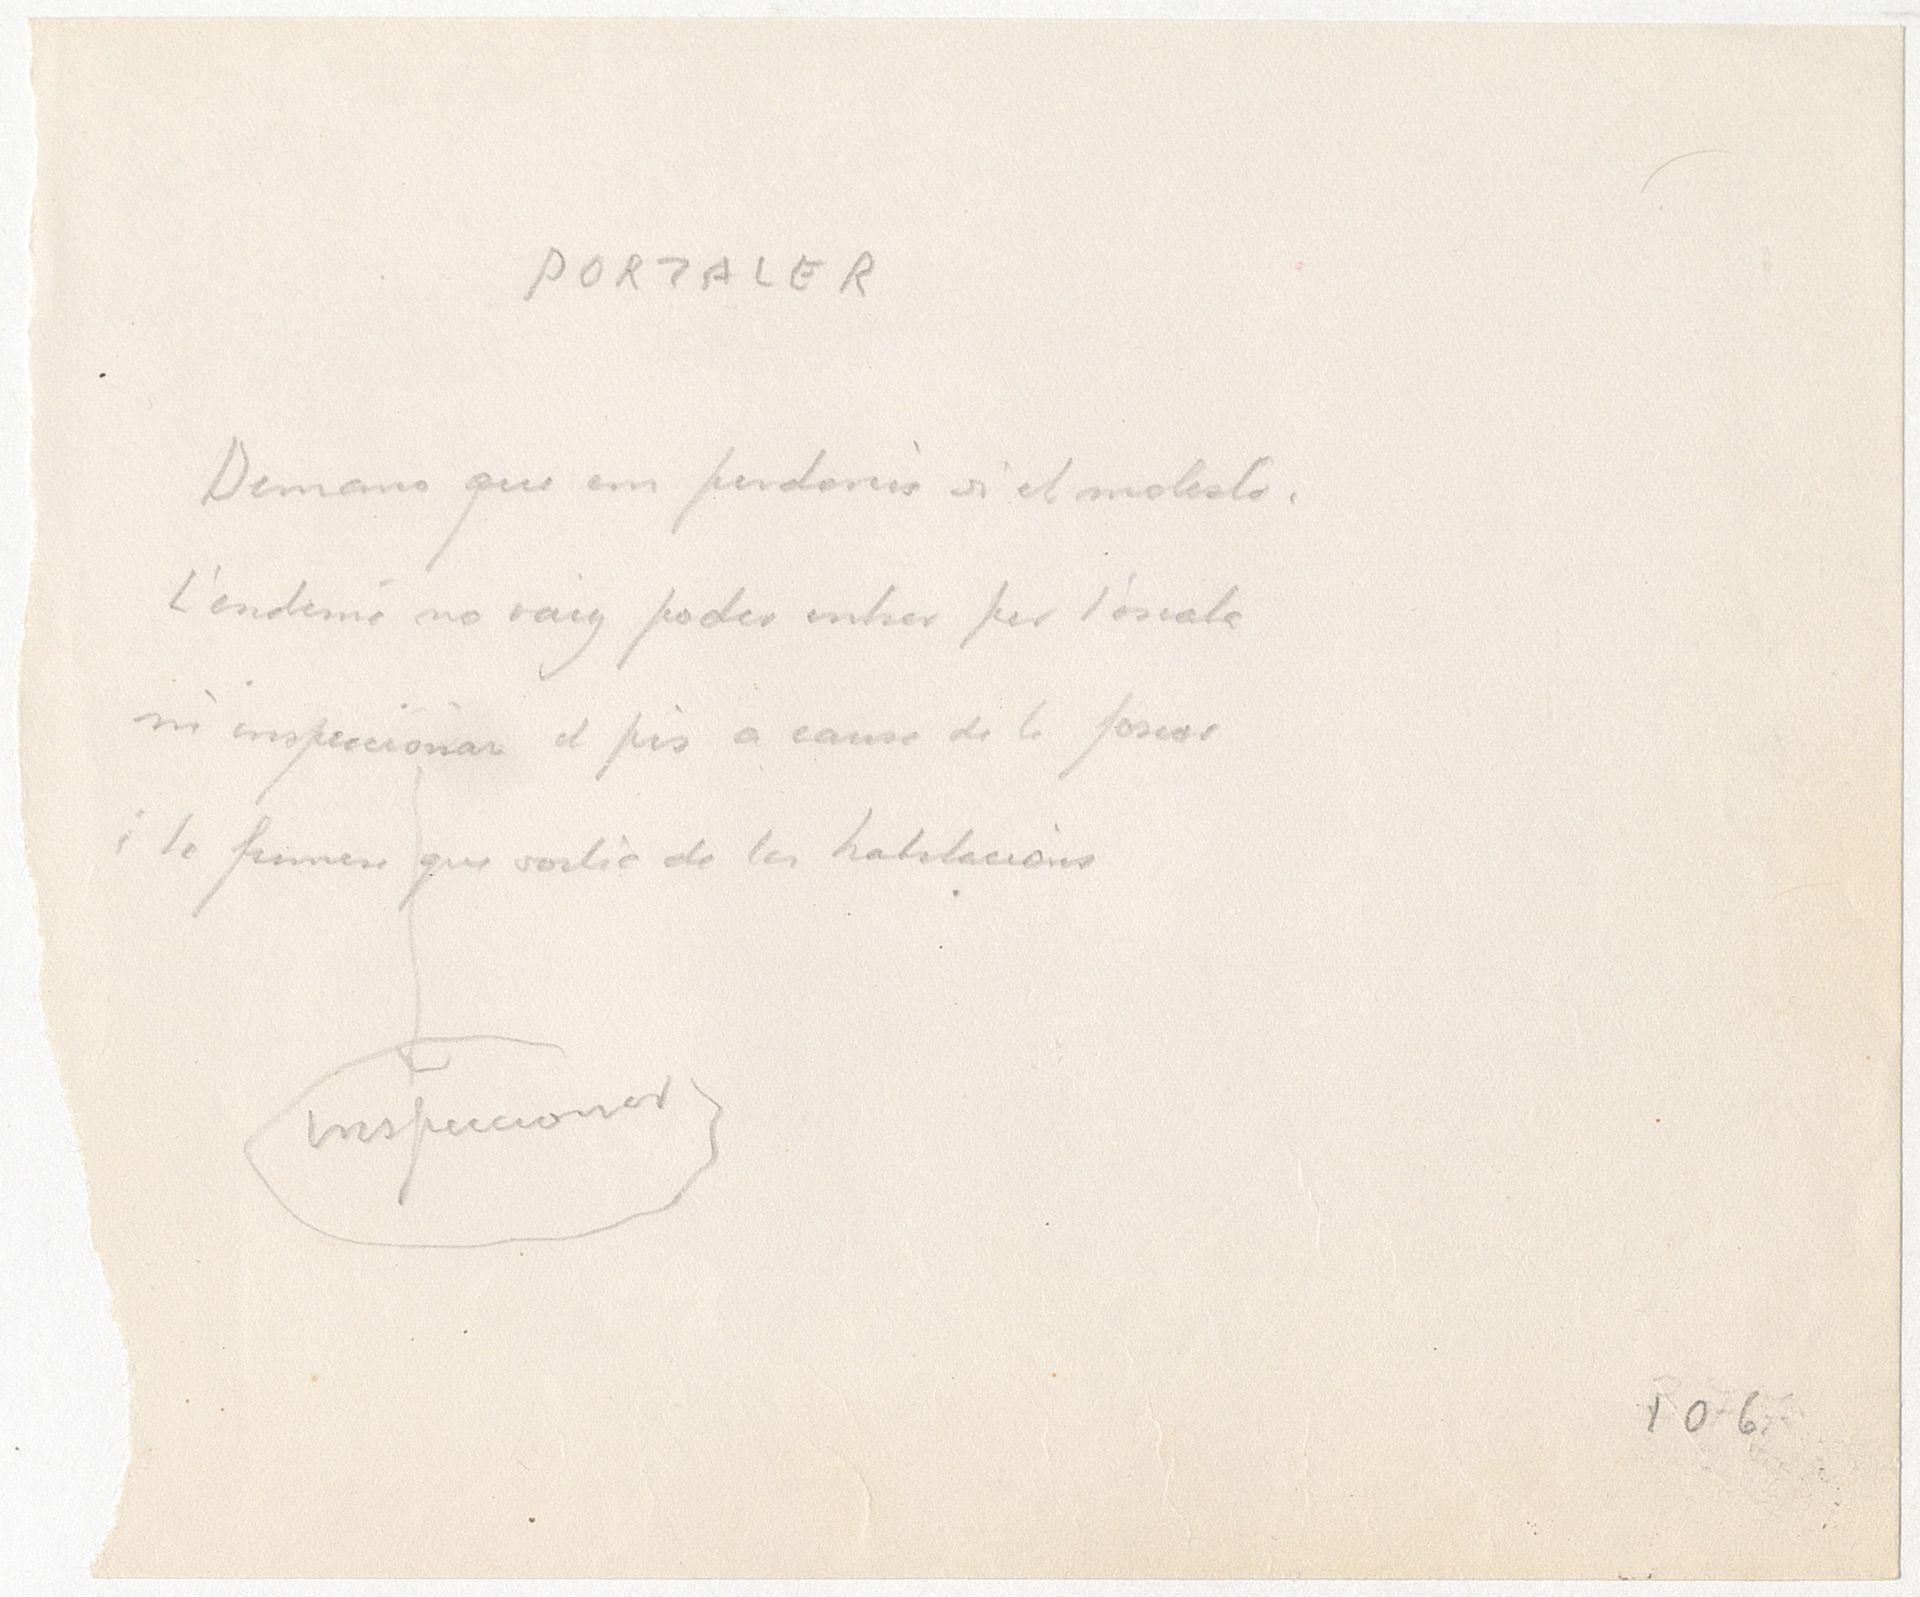 PORTALER
Demano que em perdoneu si el molesto.
L'endemà no vaig poder entrar per l'escala
ni inspeccionar el pis a causa de la foscor
i la fumera que sortia de les habitacions
inspeccionar
106